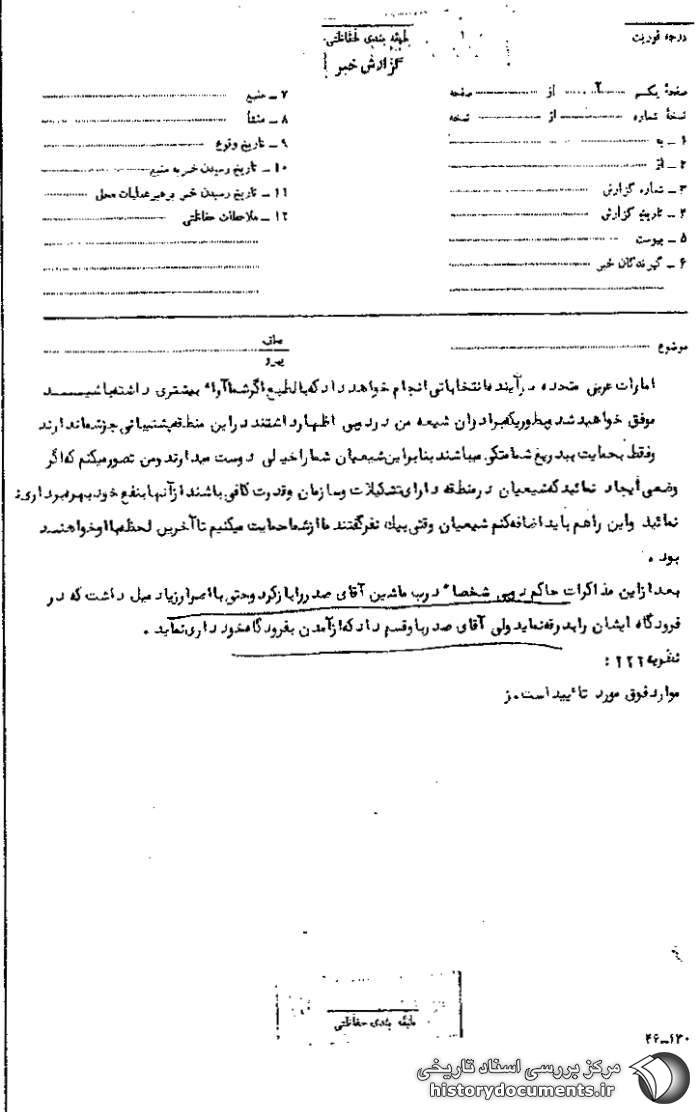 درجه فوریت
طبقه بندی حفاظتی
گزارش خبر
صفحهٔ یکم از صفحه
نسخهٔ شماره از نسخه
۱ ـ به
۲ ـ از
۳ ـ شماره گزارش
۴ ـ تاریخ گزارش
۵ ـ پیوست
۶ ـ گیرندگان خبر
۷ ـ منبع
۸ ـ منشأ
۹ ـ تاریخ وقوع
۱۰ ـ تاریخ رسیدن خبر به منبع
۱۱ ـ تاریخ رسیدن خبر برهبر عملیات محل
۱۲ ـ ملاحظات حفاظتی
موضوع
عطف
پیرو
امارات عربی متحده در آینده انتخاباتی انجام خواهد داد که بالطبع اگر شما آراء بیشتری داشته باشید
موفق خواهید شد بطوریکه برادران شیعه من در دبی اظهار داشتند در این منطقه پشتیبانی جز شما ندارند
و فقط بحمایت بیدریغ شما متکی میباشند بنابراین شیعیان شما را خیلی دوست میدارند و من تصور میکنم که اگر
وضعی ایجاد نمائید که شیعیان در منطقه دارای تشکیلات و سازمان و قدرت کافی باشند از آنها بنفع خود بهره برداری
نمائید و این را هم باید اضافه کنم شیعیان وقتی بیک نفر گفتند ما از شما حمایت میکنیم تا آخرین لحظه با او خواهند
بود .
بعد از این مذاکرات حاکم دبی شخصاً درب ماشین آقای صدر را باز کرد و حتی با اصرار زیاد میل داشت که در
فرودگاه ایشان را بدرقه نماید ولی آقای صدر باو قسم داد که از آمدن بفرودگاه خودداری نماید .
نظریه ۲۲۲ :
موارد فوق مورد تائید است . ز
طبقه بندی حفاظتی
۴۶-۱۳۰
مرکز بررسی اسناد تاریخی
historydocuments.ir